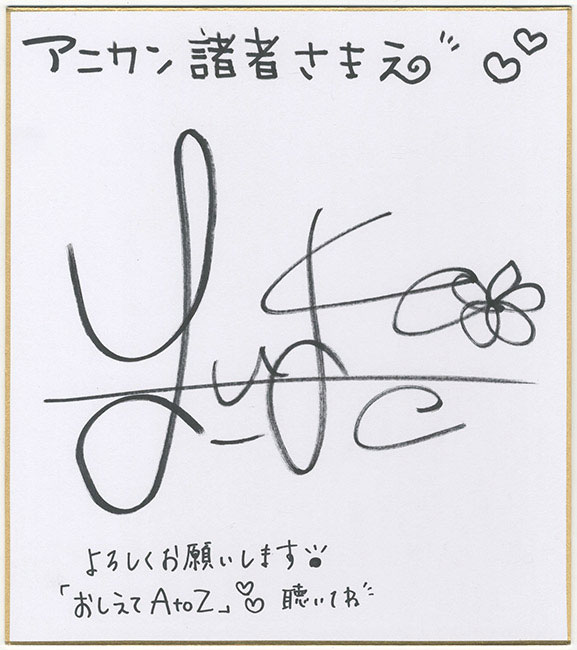 アニカン諸者さまえ
よろしくお願いします
「おしえてAtoZ」聴いてね